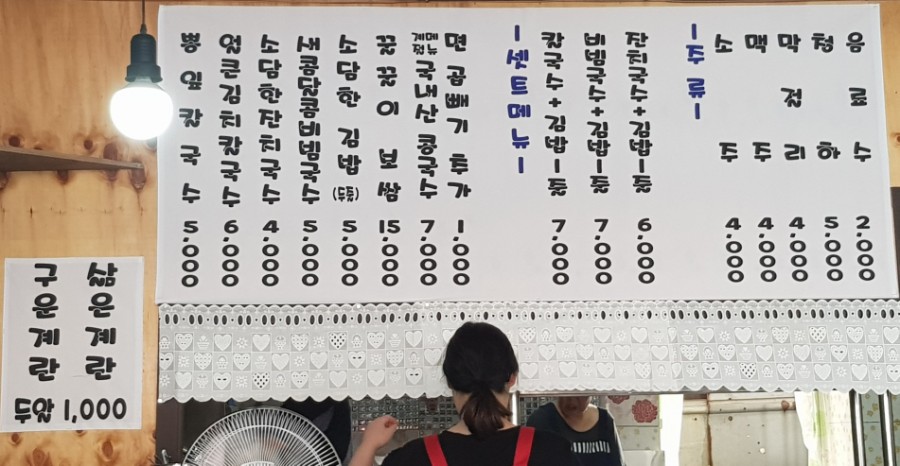 뽕잎칼국수 5,000
얼큰김치칼국수 6,000
소담한잔치국수 4,000
새콤달콤비빔국수 5,000
소담한 김밥(두줄) 5,000
꿀꿀이 보쌈 15,000
계절메뉴 국내산 콩국수 7,000
면 곱빼기 추가 1,000
-셋트메뉴-
칼국수+김밥一줄 7,000
비빔국수+김밥一줄 7,000
잔치국수+김밥一줄 6,000
-주류-
소주 4,000
맥주 4,000
막걸리 4,000
청하 5,000
음료수 2,000
구운계란
삶은계란
두알 1,000